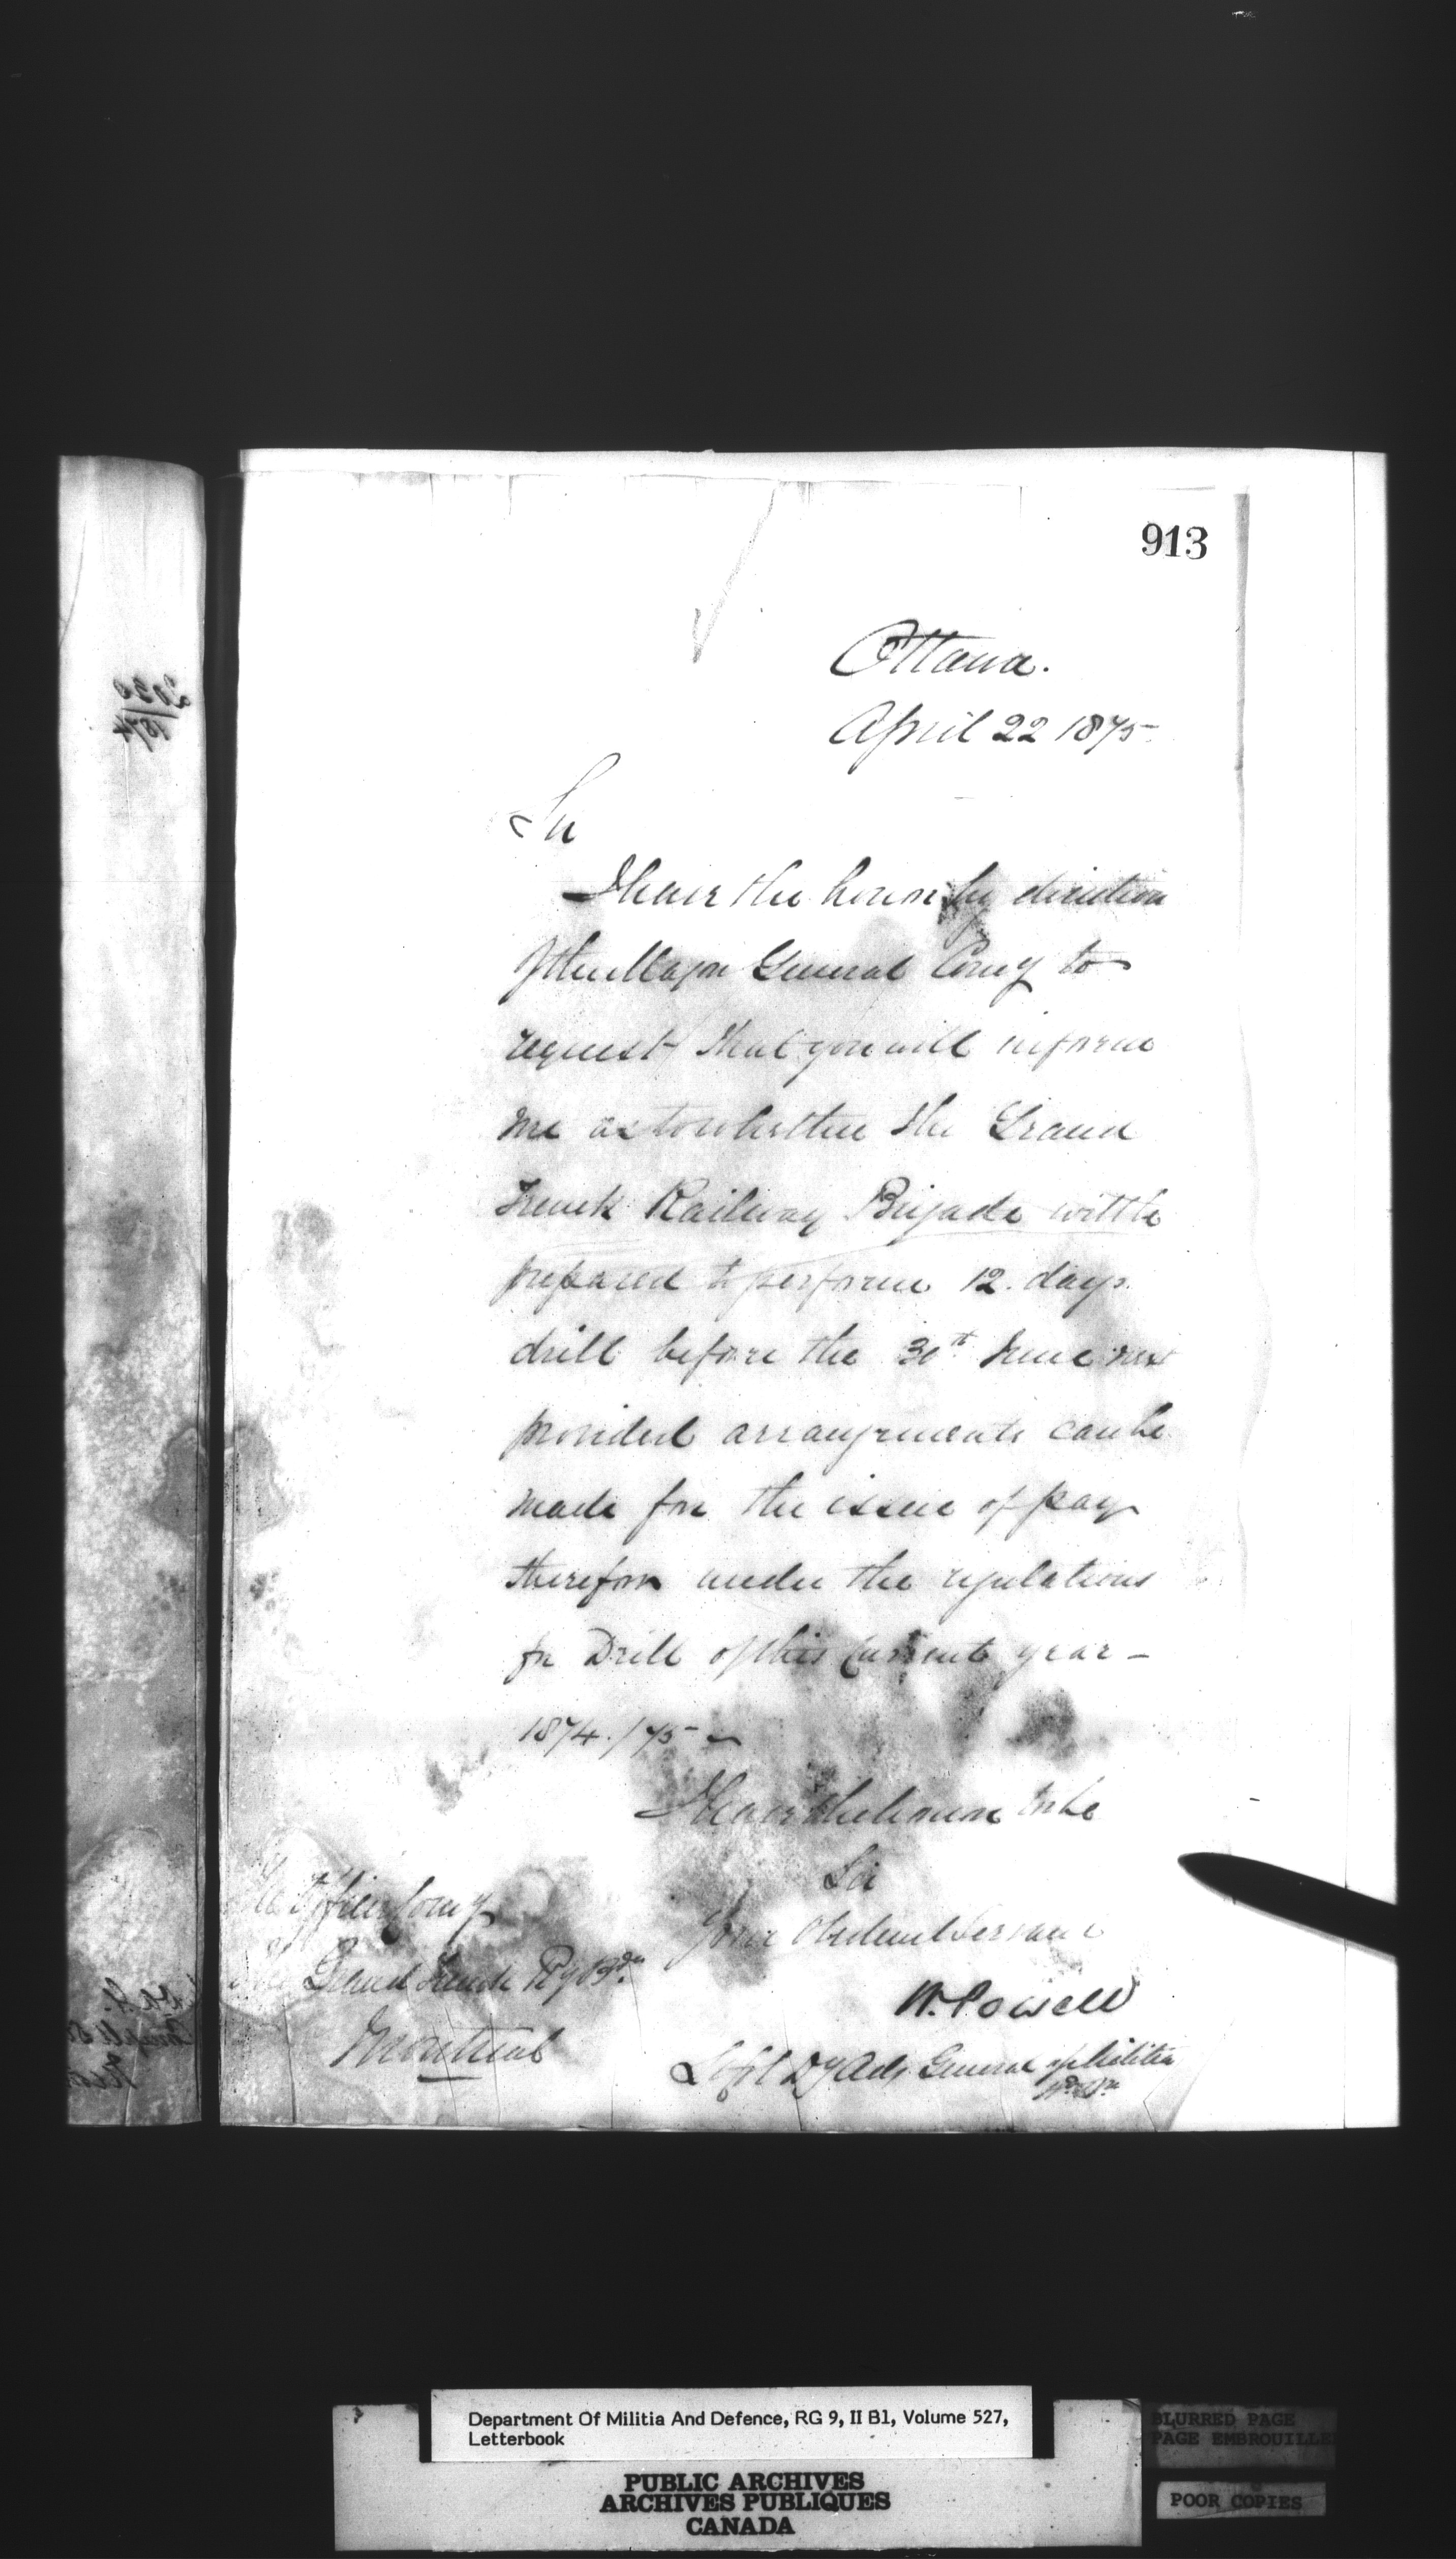 913
Ottawa.
April 22 1875-
Sir
I have the honor by direction
of the Major General Comg to
request that you will inform
me as to whether the Grand
Trunk Railway Brigade will be
prepared to perform 12. days.
drill before the 30th June next
provided arrangements can be
made for the issue of pay
therefor under the regulations
for Drill of this Current year -
1874./75-
I have the honor to be
Sir
Your Obedient Servant
W. Powell
Dy Adj. General of Militia
The Officer Comg
The Grand Trunk Ry Bde
Montreal
Department Of Militia And Defence, RG 9, II B1, Volume 527,
Letterbook
PUBLIC ARCHIVES
ARCHIVES PUBLIQUES
CANADA
BLURRED PAGE
PAGE EMBROUILLE
POOR COPIES